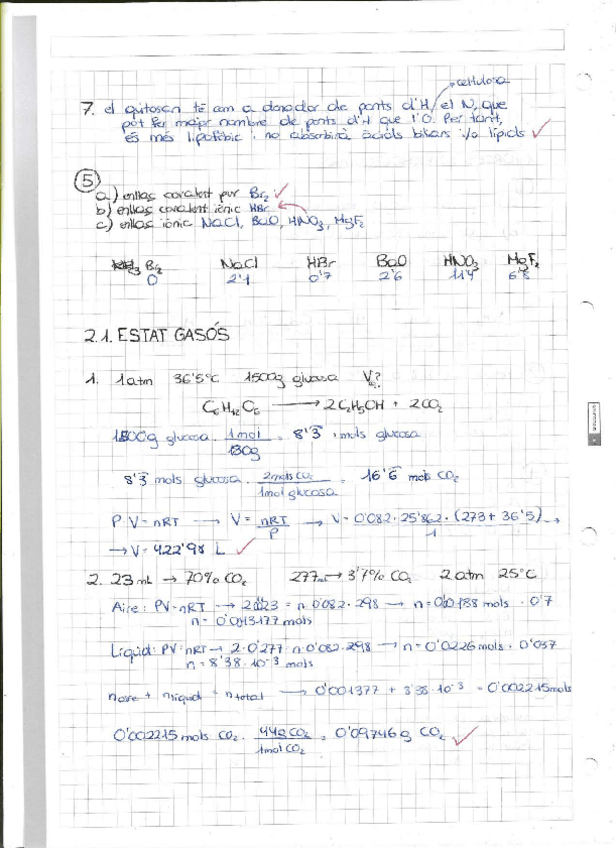 cel·lulosa
7. el quitosan té com a donador de ponts d'H, el N, que
pot fer major nombre de ponts d'H que l'O. Per tant,
és més lipofòbic i no absorbirà àcids biliars i/o lípids
5
a) enllaç covalent pur Br₂
b) enllaç covalent iònic HBr
c) enllaç iònic NaCl, BaO, HNO₃, MgF₂
Br₂ NaCl HBr BaO HNO₃ MgF₂
0 2'1 0'7 2'6 11'4 6'8
2.1. ESTAT GASÓS
1. 1atm 36'5°C 1500g glucosa V?
C₆H₁₂O₆ → 2C₂H₅OH + 2CO₂
1500g glucosa · 1mol / 180g = 8'3 mols glucosa
8'3 mols glucosa · 2mols CO₂ / 1mol glucosa = 16'6 mols CO₂
P·V=nRT → V = nRT / P → V= 0'082·25'862·(273+36'5) / 1 →
→ V= 422'98 L
2. 23 mL → 70% CO₂ 277mL → 3'7% CO₂ 2atm 25°C
Aire: PV=nRT → 2·0'023 = n·0'082·298 → n=0'00188 mols · 0'7
n= 0'0013177 mols
Líquid: PV=nRT → 2·0'277= n·0'082·298 → n=0'0226mols · 0'037
n= 8'38·10⁻³ mols
n aire + n líquid = n total → 0'001377 + 8'38·10⁻³ = 0'002215mols
0'002215 mols CO₂ · 44g CO₂ / 1mol CO₂ = 0'09746g CO₂